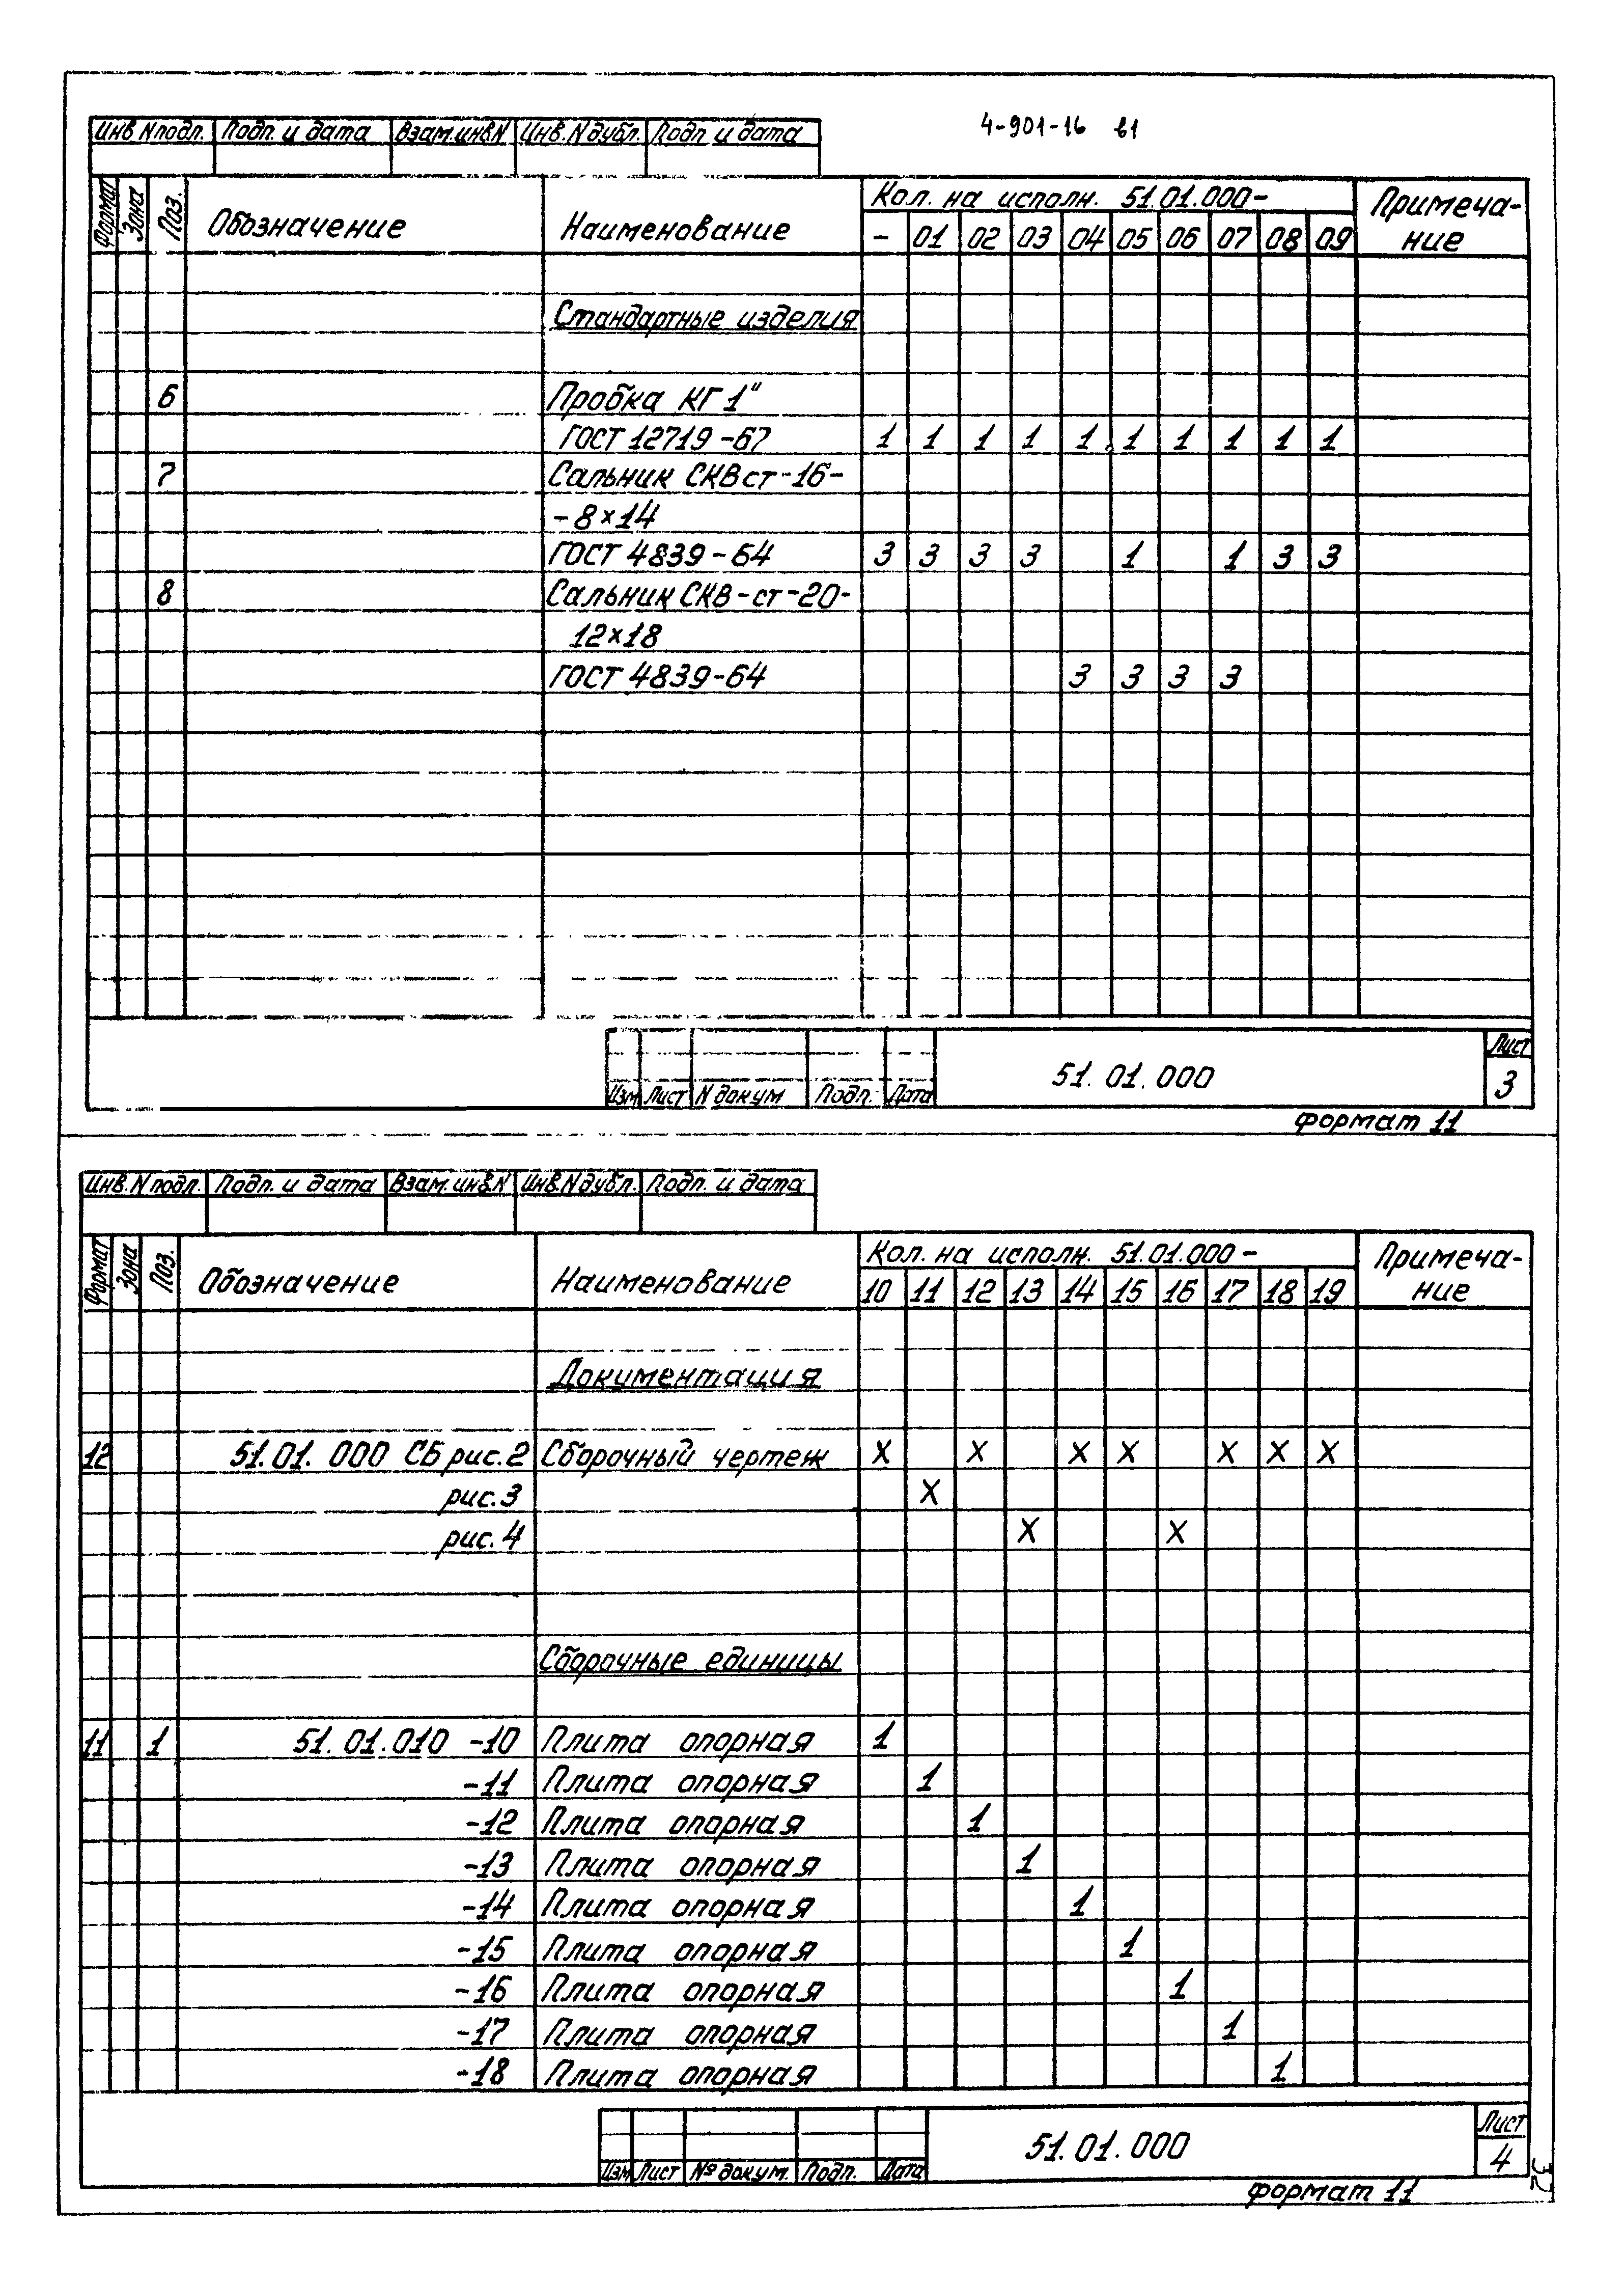 4-901-16 в1
Инв. N подл. Подп. и дата Взам. инв. N Инв. N дубл. Подп и дата
Формат Зона Поз. Обозначение Наименование Кол. на исполн. 51.01.000- Примеча-
- 01 02 03 04 05 06 07 08 09 ние
Стандартные изделия
6 Пробка КГ 1"
ГОСТ 12719-67 1 1 1 1 1 1 1 1 1 1
7 Сальник СКВ ст-16-
-8×14
ГОСТ 4839-64 3 3 3 3 1 1 3 3
8 Сальник СКВ-ст-20-
12×18
ГОСТ 4839-64 3 3 3 3
51.01.000 Лист
Изм Лист N докум Подп. Дата 3
Формат 11
Инв. N подл. Подп. и дата Взам. инв. N Инв. N дубл. Подп. и дата
Формат Зона Поз. Обозначение Наименование Кол. на исполн. 51.01.000- Примеча-
10 11 12 13 14 15 16 17 18 19 ние
Документация
12 51.01.000 СБ рис. 2 Сборочный чертеж X X X X X X X
рис. 3 X
рис. 4 X X
Сборочные единицы
11 1 51.01.010 -10 Плита опорная 1
-11 Плита опорная 1
-12 Плита опорная 1
-13 Плита опорная 1
-14 Плита опорная 1
-15 Плита опорная 1
-16 Плита опорная 1
-17 Плита опорная 1
-18 Плита опорная 1
51.01.000 Лист
Изм Лист № докум. Подп. Дата 4
Формат 11
32